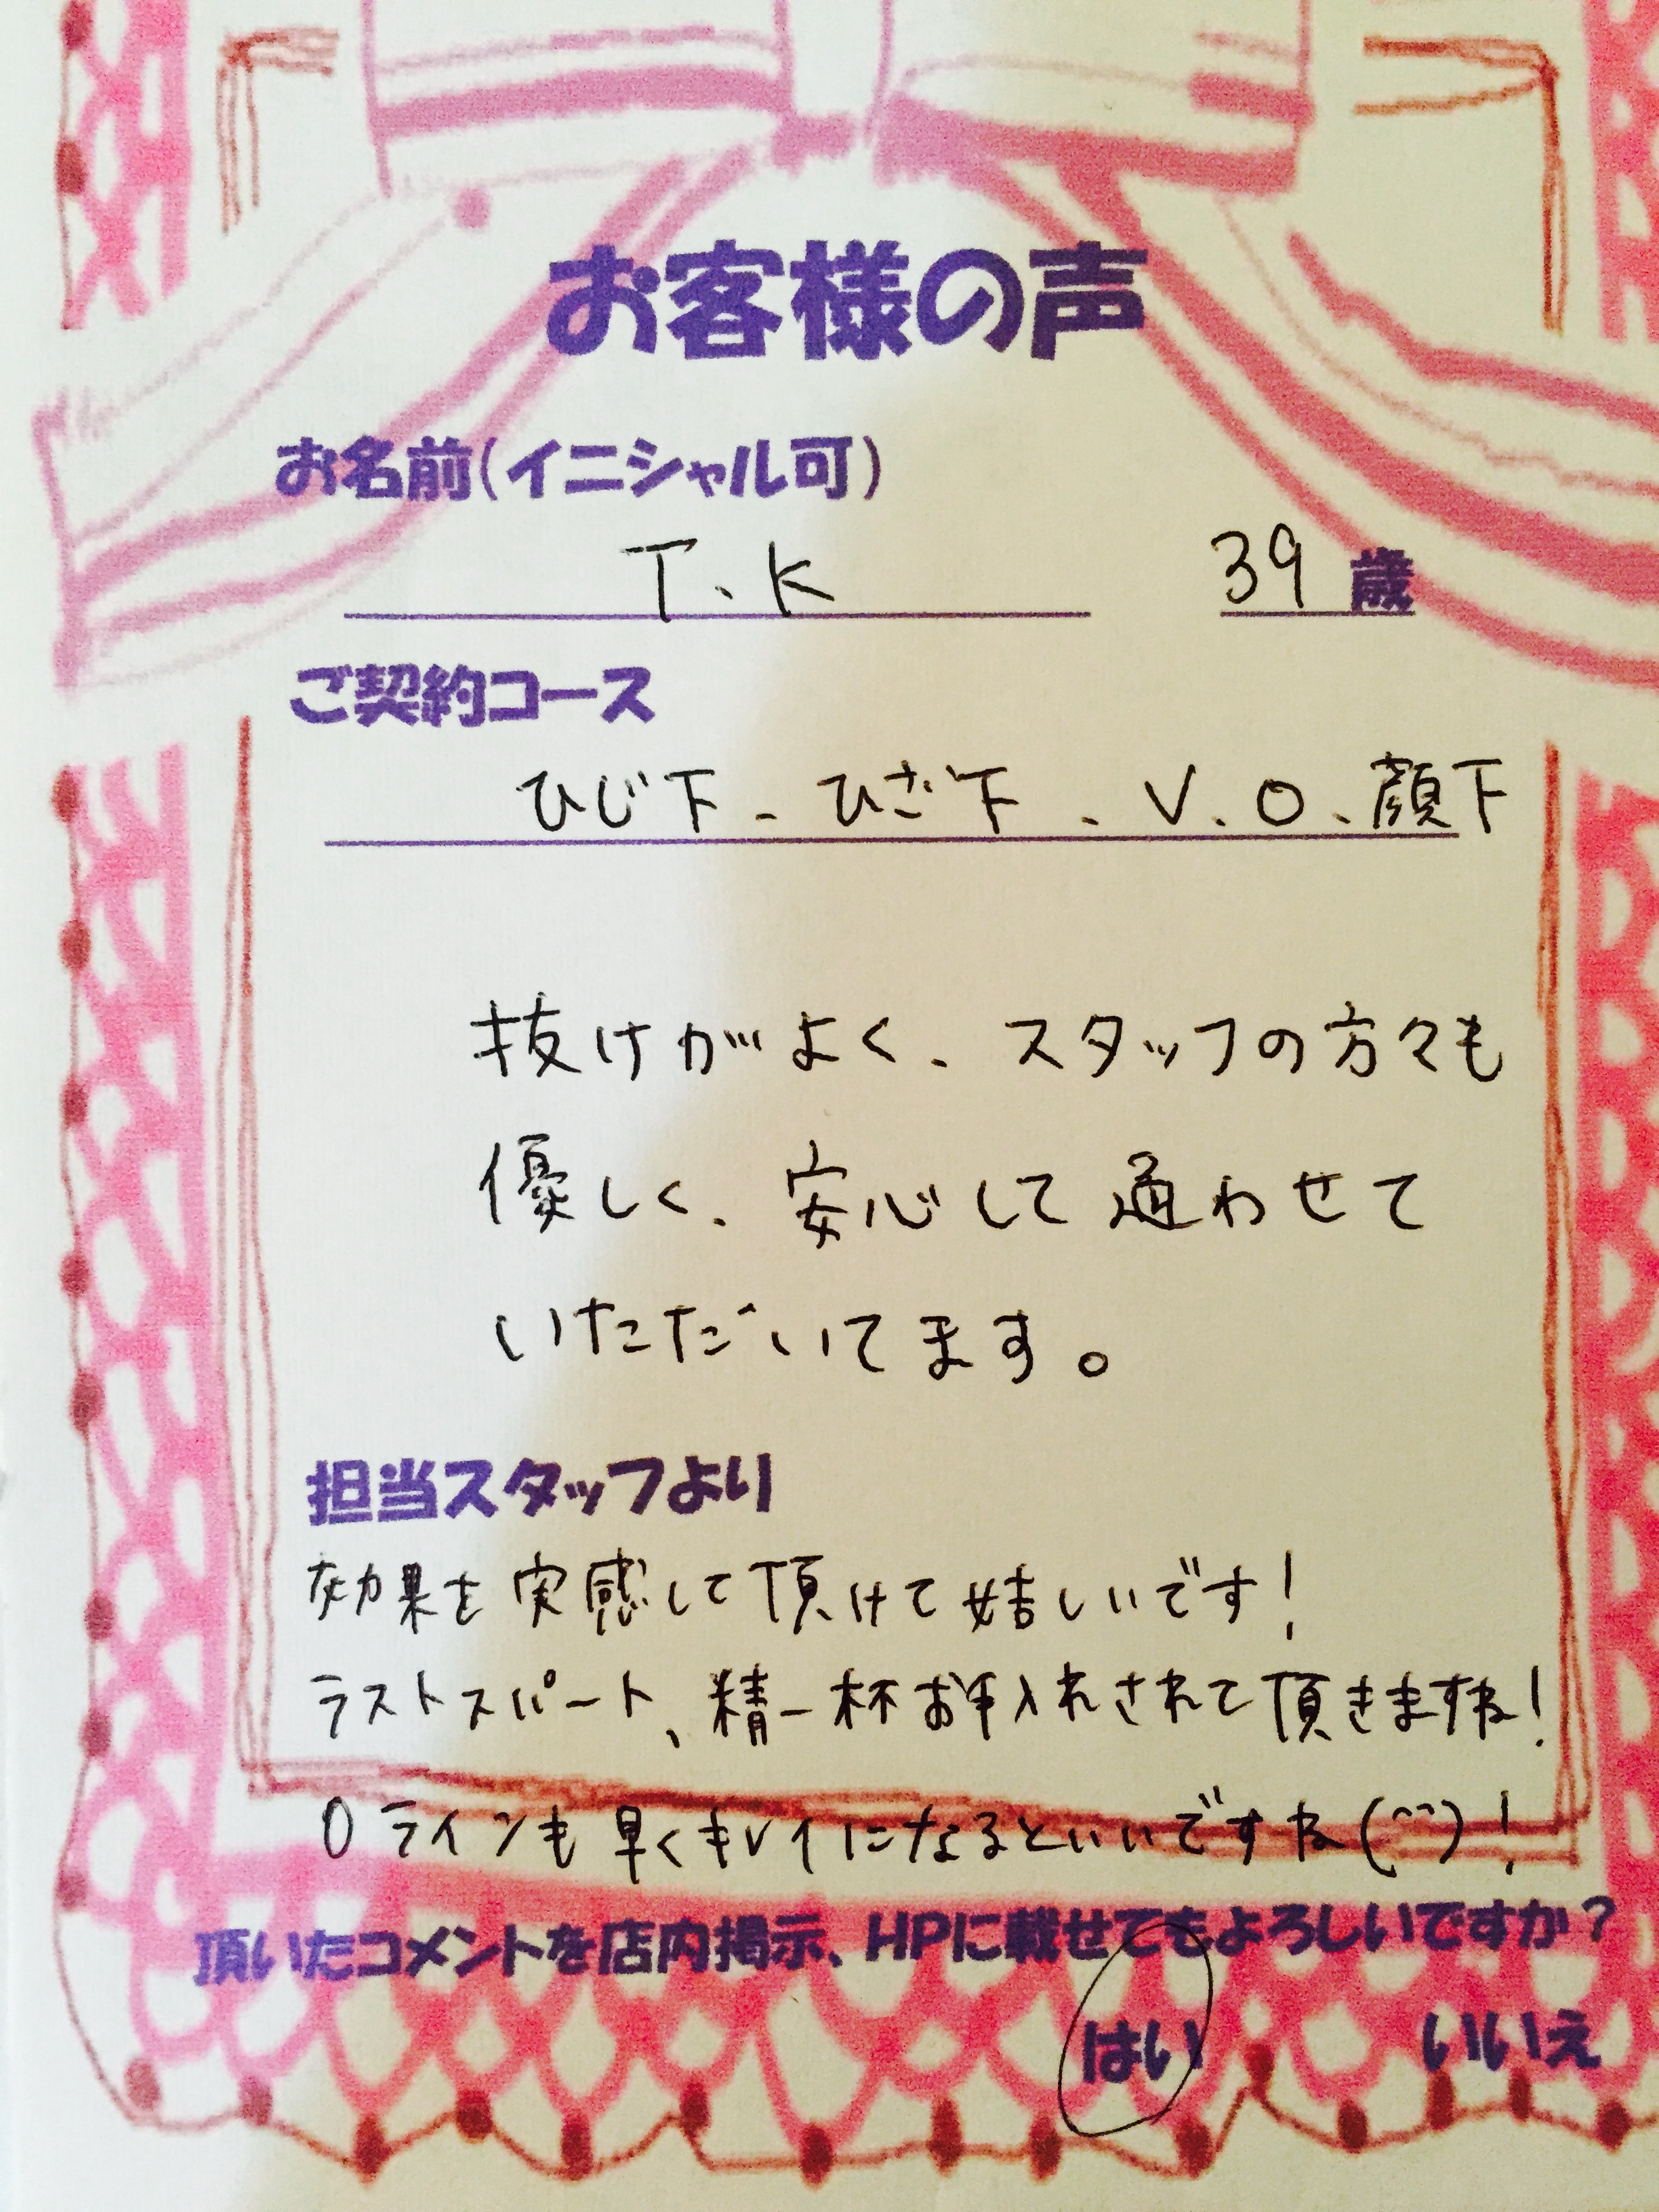 お客様の声
お名前(イニシャル可)
T.K 39歳
ご契約コース
ひじ下、ひざ下、V.O、顔下
抜けがよく、スタッフの方々も
優しく、安心して通わせて
いただいてます。
担当スタッフより
効果を実感して頂けて嬉しいです!
ラストスパート、精一杯お手入れされて頂きますね!
Oラインも早くキレイになるといいですね(^^)!
頂いたコメントを店内掲示、HPに載せてもよろしいですか?
はい いいえ